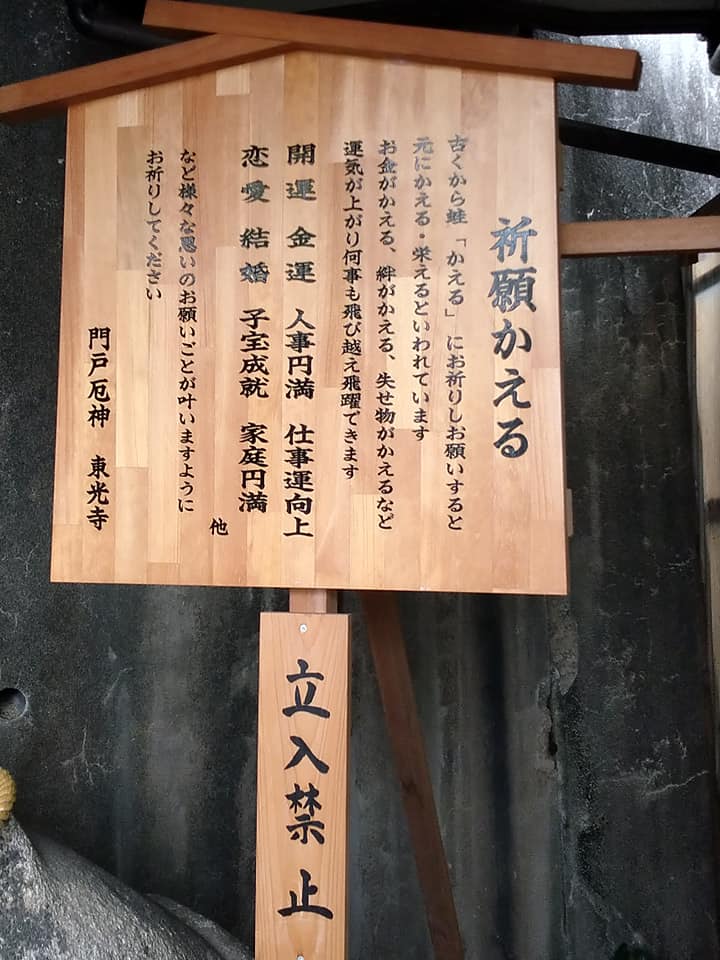 祈願かえる
古くから蛙「かえる」にお祈りしお願いすると
元にかえる・栄えるといわれています
お金がかえる、絆がかえる、失せ物がかえるなど
運気が上がり何事も飛び越え飛躍できます
開運 金運 人事円満 仕事運向上
恋愛 結婚 子宝成就 家庭円満
他
など様々な思いのお願いごとが叶いますように
お祈りしてください
門戸厄神 東光寺
立入禁止